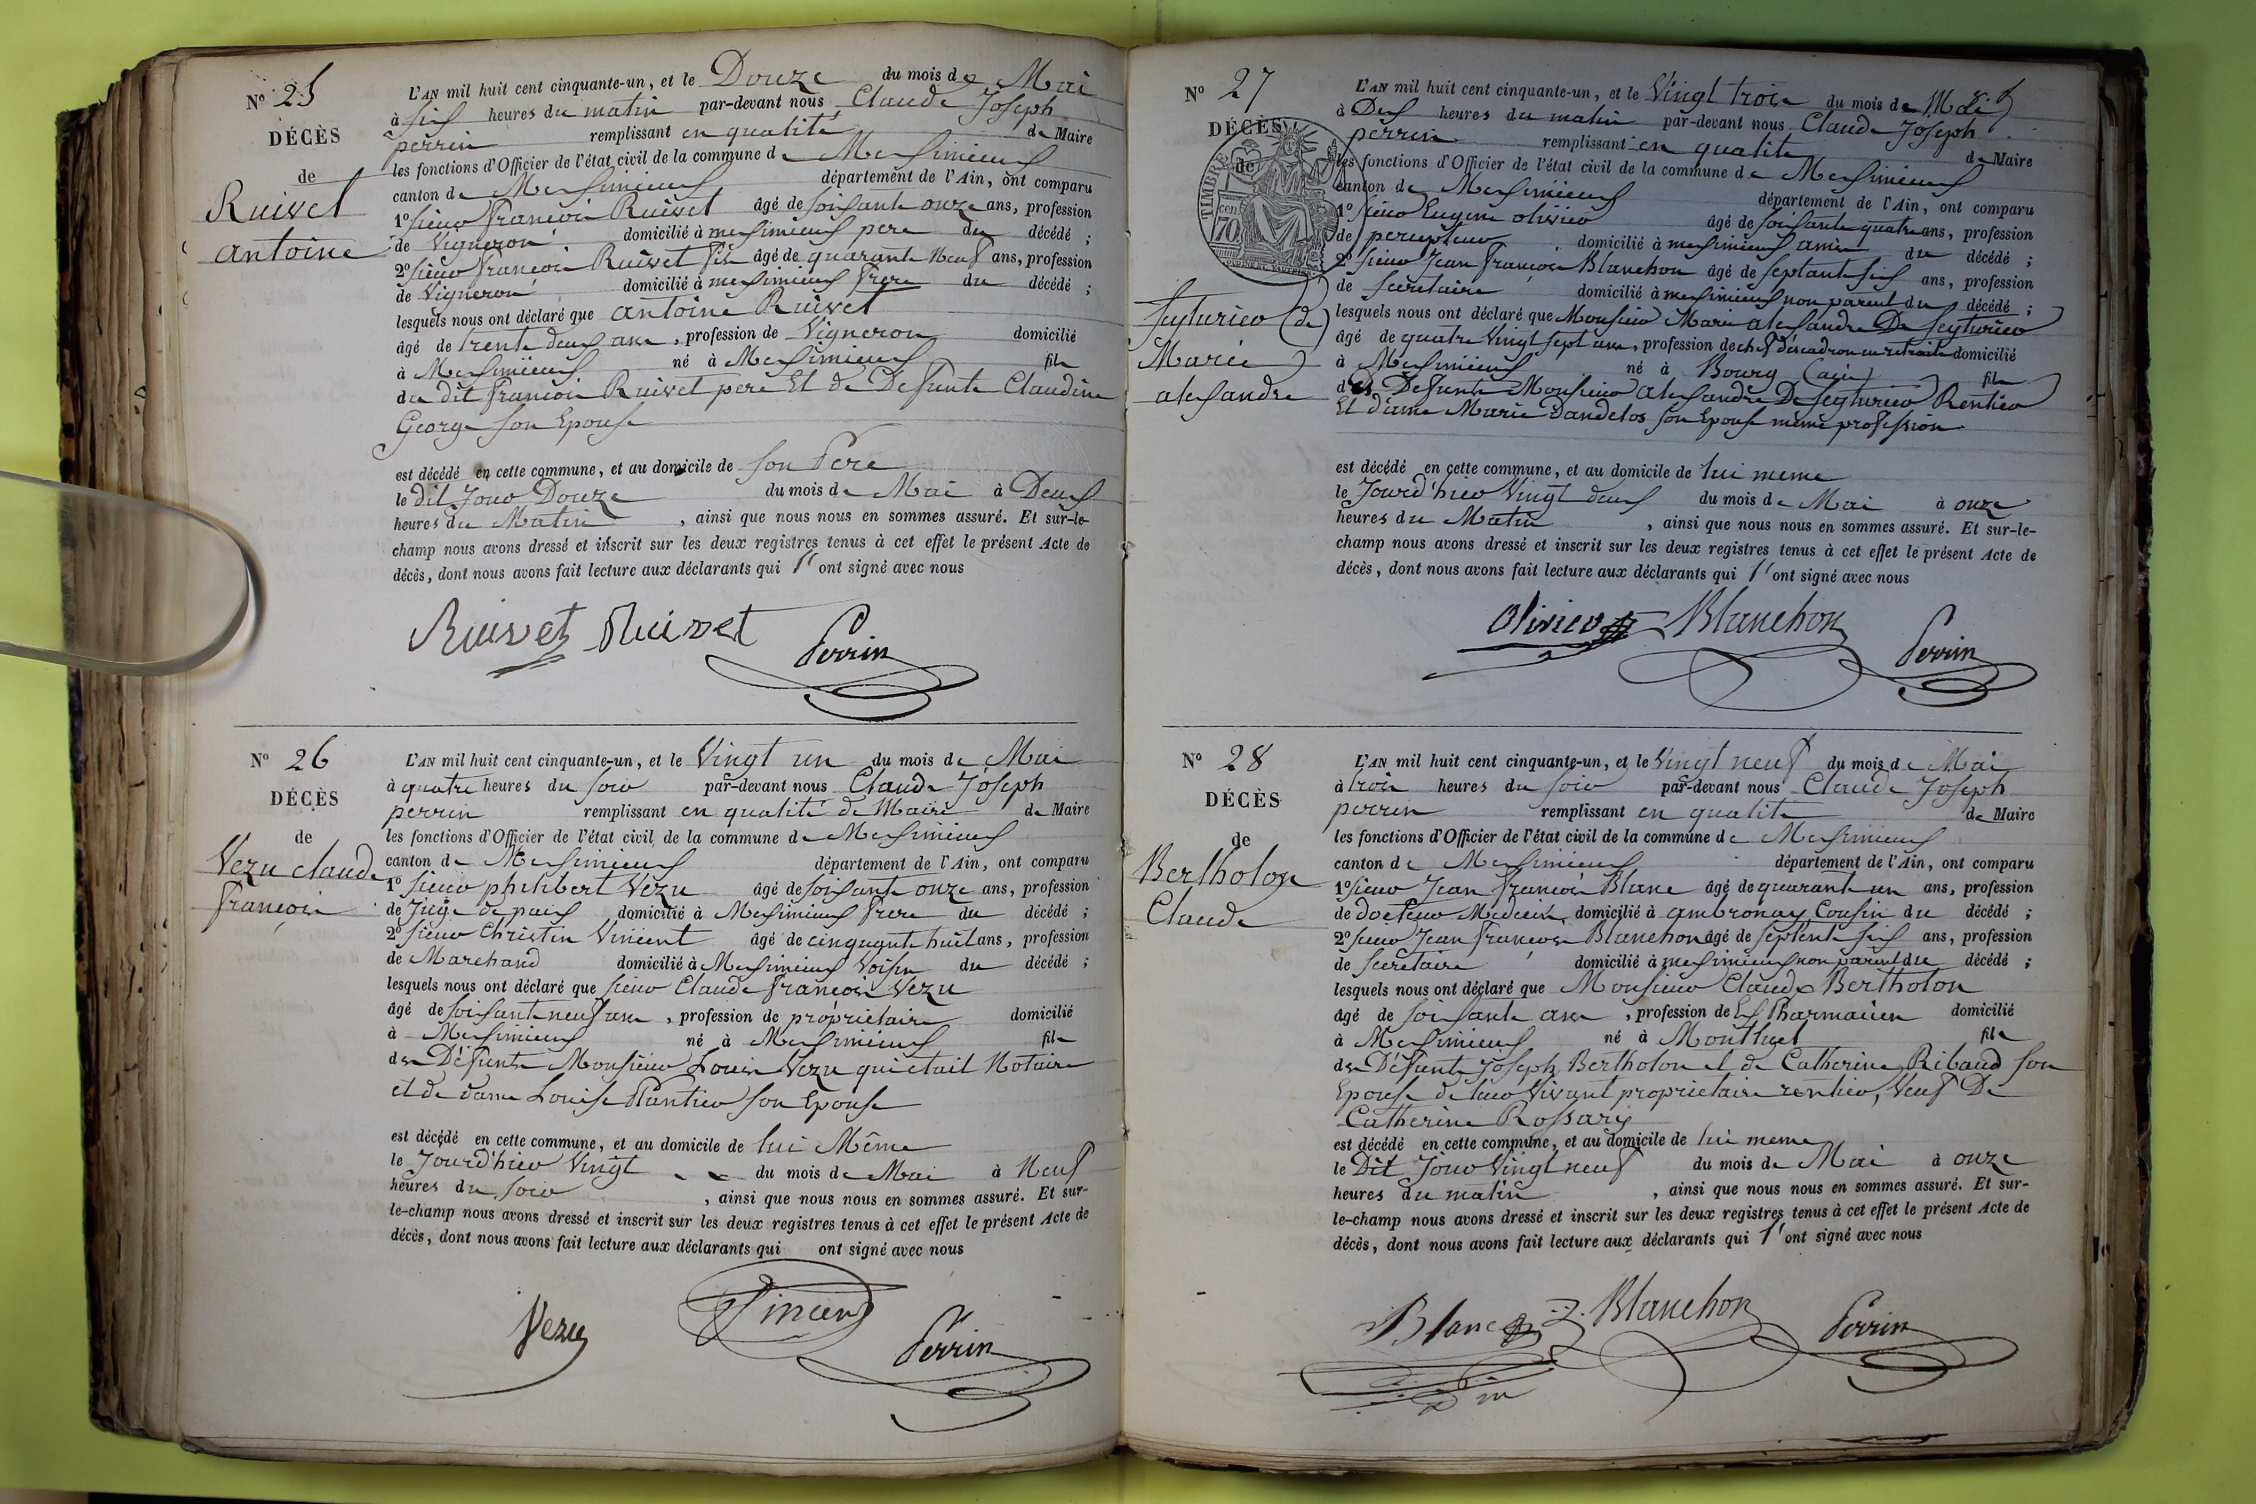 Nº 25
DÉCÈS
de
Ruivet
antoine
L'AN mil huit cent cinquante-un, et le Douze du mois de Mai
à six heures du matin par-devant nous Claude Joseph
perrin remplissant en qualité de Maire
les fonctions d'Officier de l'état civil de la commune de Meximieux
canton de Meximieux département de l'Ain, ont comparu
1º sieur François Ruivet âgé de soixante onze ans, profession
de Vigneron domicilié à meximieux pere du décédé ;
2º sieur François Ruivet fils âgé de quarante neuf ans, profession
de Vigneron domicilié à meximieux frere du décédé ;
lesquels nous ont déclaré que antoine Ruivet
âgé de trente deux ans, profession de Vigneron domicilié
à Meximieux né à Meximieux fils
du dit François Ruivet pere Et de Defunte Claudine
George son Epouse
est décédé en cette commune, et au domicile de son Pere
le dit Jour Douze du mois de Mai à Deux
heures du Matin, ainsi que nous nous en sommes assuré. Et sur-le-
champ nous avons dressé et inscrit sur les deux registres tenus à cet effet le présent Acte de
décès, dont nous avons fait lecture aux déclarants qui l'ont signé avec nous
Ruivet Ruivet Perrin
Nº 26
DÉCÈS
de
Vezu claude
françois
L'AN mil huit cent cinquante-un, et le Vingt un du mois de Mai
à quatre heures du soir par-devant nous Claude Joseph
perrin remplissant en qualité de Maire de Maire
les fonctions d'Officier de l'état civil de la commune de Meximieux
canton de Meximieux département de l'Ain, ont comparu
1º sieur philibert Vezu âgé de soixante onze ans, profession
de Juge de paix domicilié à Meximieux frere du décédé ;
2º sieur Christin Vincent âgé de cinquante huit ans, profession
de Marchand domicilié à Meximieux Voisin du décédé ;
lesquels nous ont déclaré que sieur Claude françois Vezu
âgé de soixante neuf ans, profession de propriétaire domicilié
à Meximieux né à Meximieux fils
de Défunts Monsieur Louis Vezu qui etait Notaire
et de dame Louise Plantier son Epouse
est décédé en cette commune, et au domicile de lui Même
le Jourd'hier Vingt du mois de Mai à Neuf
heures du soir, ainsi que nous nous en sommes assuré. Et sur-
le-champ nous avons dressé et inscrit sur les deux registres tenus à cet effet le présent Acte de
décès, dont nous avons fait lecture aux déclarants qui ont signé avec nous
Vezu Vincent Perrin
Nº 27
DÉCÈS
de
TIMBRE
cen 70
Seyturier (de)
Marie
alexandre
L'AN mil huit cent cinquante-un, et le Vingt trois du mois de Mai
à Dix heures du matin par-devant nous Claude Joseph
perrin remplissant en qualité de Maire
les fonctions d'Officier de l'état civil de la commune de Meximieux
canton de Meximieux département de l'Ain, ont comparu
1º sieur Eugene olivier âgé de soixante quatre ans, profession
de percepteur domicilié à meximieux ami du décédé ;
2º sieur Jean François Blanchon âgé de septante six ans, profession
de secretaire domicilié à meximieux non parent du décédé ;
lesquels nous ont déclaré que Monsieur Marie alexandre De Seyturier
âgé de quatre Vingt sept ans, profession de chef d'escadron en retraite domicilié
à Meximieux né à Bourg (ain) fils
des Defunts Monsieur alexandre De Seyturier Rentier
Et dame Marie Dandelos son Epouse meme profession
est décédé en cette commune, et au domicile de lui meme
le Jourd'hier Vingt deux du mois de Mai à onze
heures du Matin, ainsi que nous nous en sommes assuré. Et sur-le-
champ nous avons dressé et inscrit sur les deux registres tenus à cet effet le présent Acte de
décès, dont nous avons fait lecture aux déclarants qui l'ont signé avec nous
Olivier Blanchon Perrin
Nº 28
DÉCÈS
de
Bertholon
Claude
L'AN mil huit cent cinquante-un, et le Vingt neuf du mois de Mai
à trois heures du soir par-devant nous Claude Joseph
perrin remplissant en qualité de Maire
les fonctions d'Officier de l'état civil de la commune de Meximieux
canton de Meximieux département de l'Ain, ont comparu
1º sieur Jean François Blanc âgé de quarante un ans, profession
de docteur Medecin domicilié à ambronay Cousin du décédé ;
2º sieur Jean François Blanchon âgé de septente six ans, profession
de secretaire domicilié à meximieux non parent du décédé ;
lesquels nous ont déclaré que Monsieur Claude Bertholon
âgé de soixante ans, profession de Ex Pharmacien domicilié
à Meximieux né à Montluel fils
de Défunts Joseph Bertholon et de Catherine Ribaud son
Epouse de leur Vivant proprietaire rentier, Veuf De
Catherine Rossary
est décédé en cette commune, et au domicile de lui meme
le Dit Jour Vingt neuf du mois de Mai à onze
heures du matin, ainsi que nous nous en sommes assuré. Et sur-
le-champ nous avons dressé et inscrit sur les deux registres tenus à cet effet le présent Acte de
décès, dont nous avons fait lecture aux déclarants qui l'ont signé avec nous
Blanc Blanchon Perrin